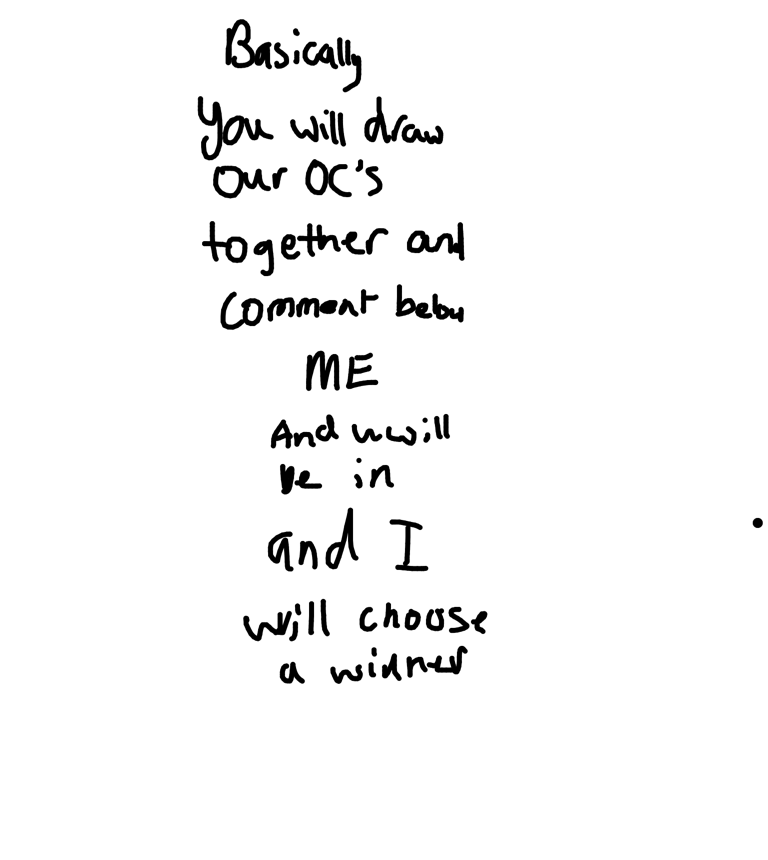 Basically
You will draw
our OC's
together and
comment below
ME
And u will
be in
and I
will choose
a winner